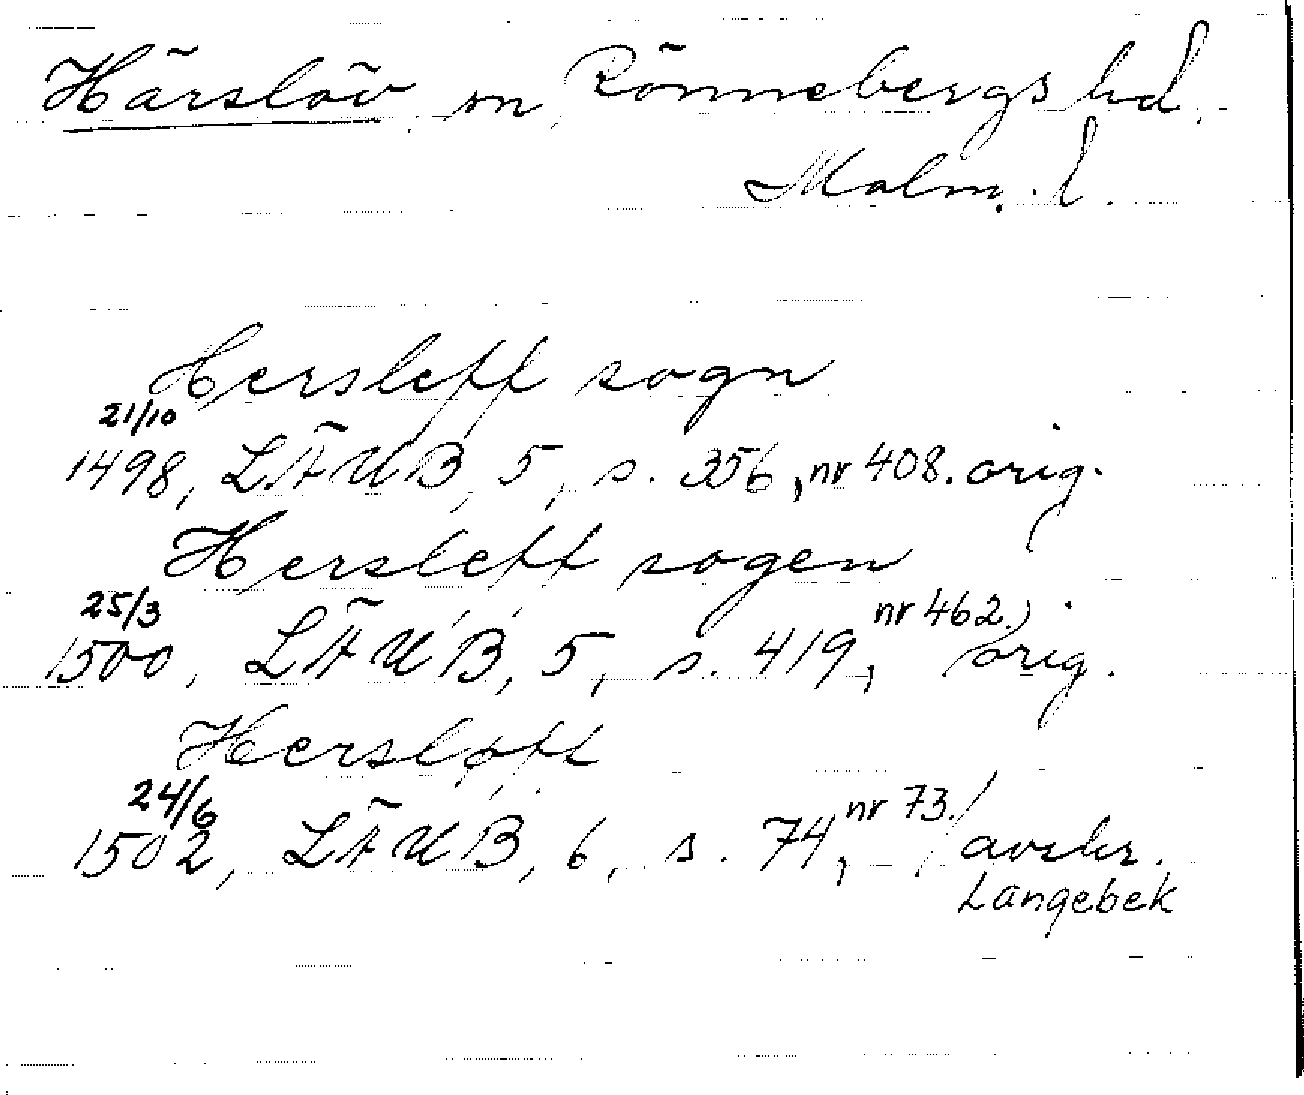 Härslöv sn Rönnebergs hd.
Malm. l.
Hersleff sogn
21/10
1498, LÄUB, 5, s. 356, nr 408. orig.
Hersleff sogen
25/3
1500, LÄUB, 5, s. 419, nr 462. orig.
Hersløff
24/6
1502, LÄUB, 6, s. 74, nr 73. / avskr.
Langebek